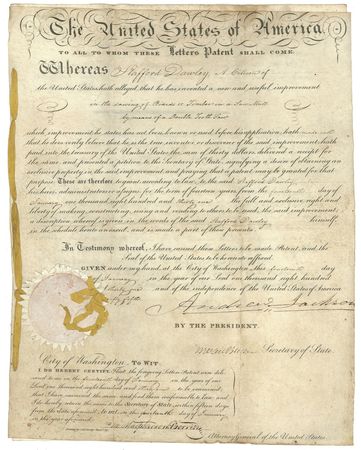 The United States of America
TO ALL TO WHOM THESE Letters Patent SHALL COME:
Whereas Stafford Dawley A Citizen of
the United States, hath alleged that he has invented a new and useful improvement
in the sawing of Boards or Timber in a Saw Mill
by means of a Double Tooth Saw
which improvement he states has not been known or used before his application, hath made oath
that he does verily believe that he is the true inventor or discoverer of the said improvement, hath
paid into the treasury of the United States the sum of thirty dollars, delivered a receipt for
the same, and presented a petition to the Secretary of State, signifying a desire of obtaining an
exclusive property in the said improvement, and praying that a patent may be granted for that
purpose. These are therefore to grant according to law, to the said Stafford Dawley
his heirs, administrators or assigns for the term of fourteen years, from the day of
January one thousand eight hundred and thirty one the full and exclusive right and
liberty of making, constructing, using and vending to others to be used, the said improvement,
a description whereof is given in the words of the said Stafford Dawley himself,
in the schedule hereto annexed, and is made a part of these presents.
In Testimony whereof, I have caused these Letters to be made Patent, and the
Seal of the United States to be hereunto affixed.
GIVEN under my hand, at the City of Washington this day
of January in the year of our Lord one thousand eight hundred
and thirty one and of the independence of the United States of America
the
Andrew Jackson
BY THE PRESIDENT.
Secretary of State.
City of Washington, TO WIT:
I DO HEREBY CERTIFY, That the foregoing Letters Patent were deli-
vered to me on the day of January in the year of our
Lord one thousand eight hundred and thirty one to be examined;
that I have examined the same, and find them conformable to law; and
I do hereby return the same to the Secretary of State, within fifteen days
from the date aforesaid, to wit: on the day of January
in the year aforesaid.
Attorney General of the United States.